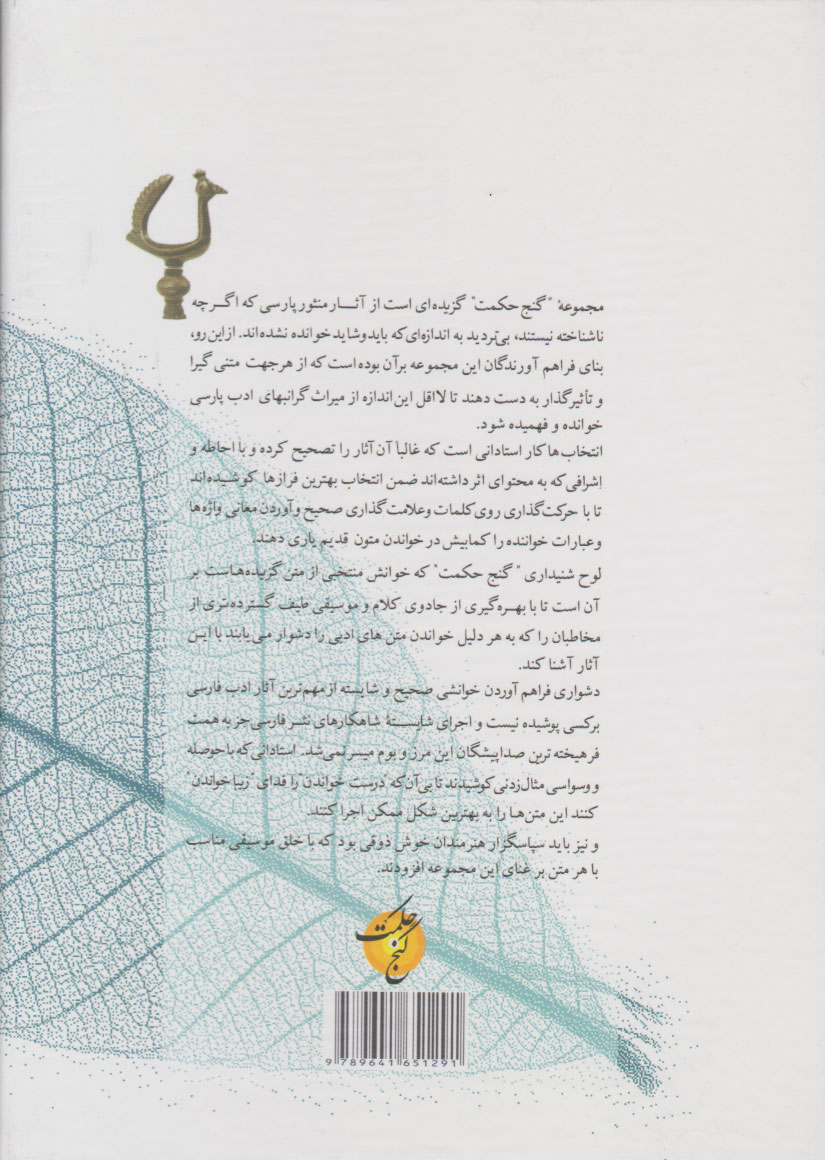 مجموعهٔ "گنج حکمت" گزیده‌ای است از آثـــار منثور پارسی که اگـرچه
ناشناخته نیستند، بی‌تردید به اندازه‌ای که باید و شاید خوانده نشده‌اند. از این رو،
بنای فراهم آورندگان این مجموعه برآن بوده است که از هر جهت متنی گیرا
و تأثیرگذار به دست دهند تا لااقل این اندازه از میراث گرانبهای ادب پارسی
خوانده و فهمیده شود.
انتخاب‌ها کار استادانی است که غالباً آن آثار را تصحیح کرده و با احاطه و
اِشرافی که به محتوای اثر داشته‌اند ضمن انتخاب بهترین فرازها کوشیده‌اند
تا با حرکت‌گذاری روی کلمات و علامت‌گذاری صحیح و آوردن معانی واژه‌ها
و عبارات خواننده را کمابیش در خواندن متون قدیم یاری دهند.
لوح شنیداری "گنج حکمت" که خوانش منتخبی از متن گزیده‌هـاست بر
آن است تا با بهـره‌گیری از جادوی کلام و موسیقی طیف گسترده‌تری از
مخاطبان را که به هر دلیل خواندن متن های ادبی را دشوار می‌یابند با ایـن
آثار آشنا کند.
دشواری فراهم آوردن خوانشی صحیح و شایسته از مهم‌ترین آثار ادب فارسی
برکسی پوشیده نیست و اجرای شایستهٔ شاهکارهای نثـر فارسی جز به همت
فرهیخته ترین صداپیشگان این مرز و بوم میسر نمی‌شد. استادانی که با حوصله
و وسواسی مثال‌زدنی کوشیدند تا بی‌آن که "درست خواندن" را فدای "زیبا خواندن"
کنند این متن‌هـا را به بهترین شکل ممکن اجرا کنند.
و نیز باید سپاسگزار هنرمندان خوش ذوقی بود که با خلق موسیقی مناسب
با هر متن بر غنای این مجموعه افزودند.
گنج حکمت
9 789641 651291